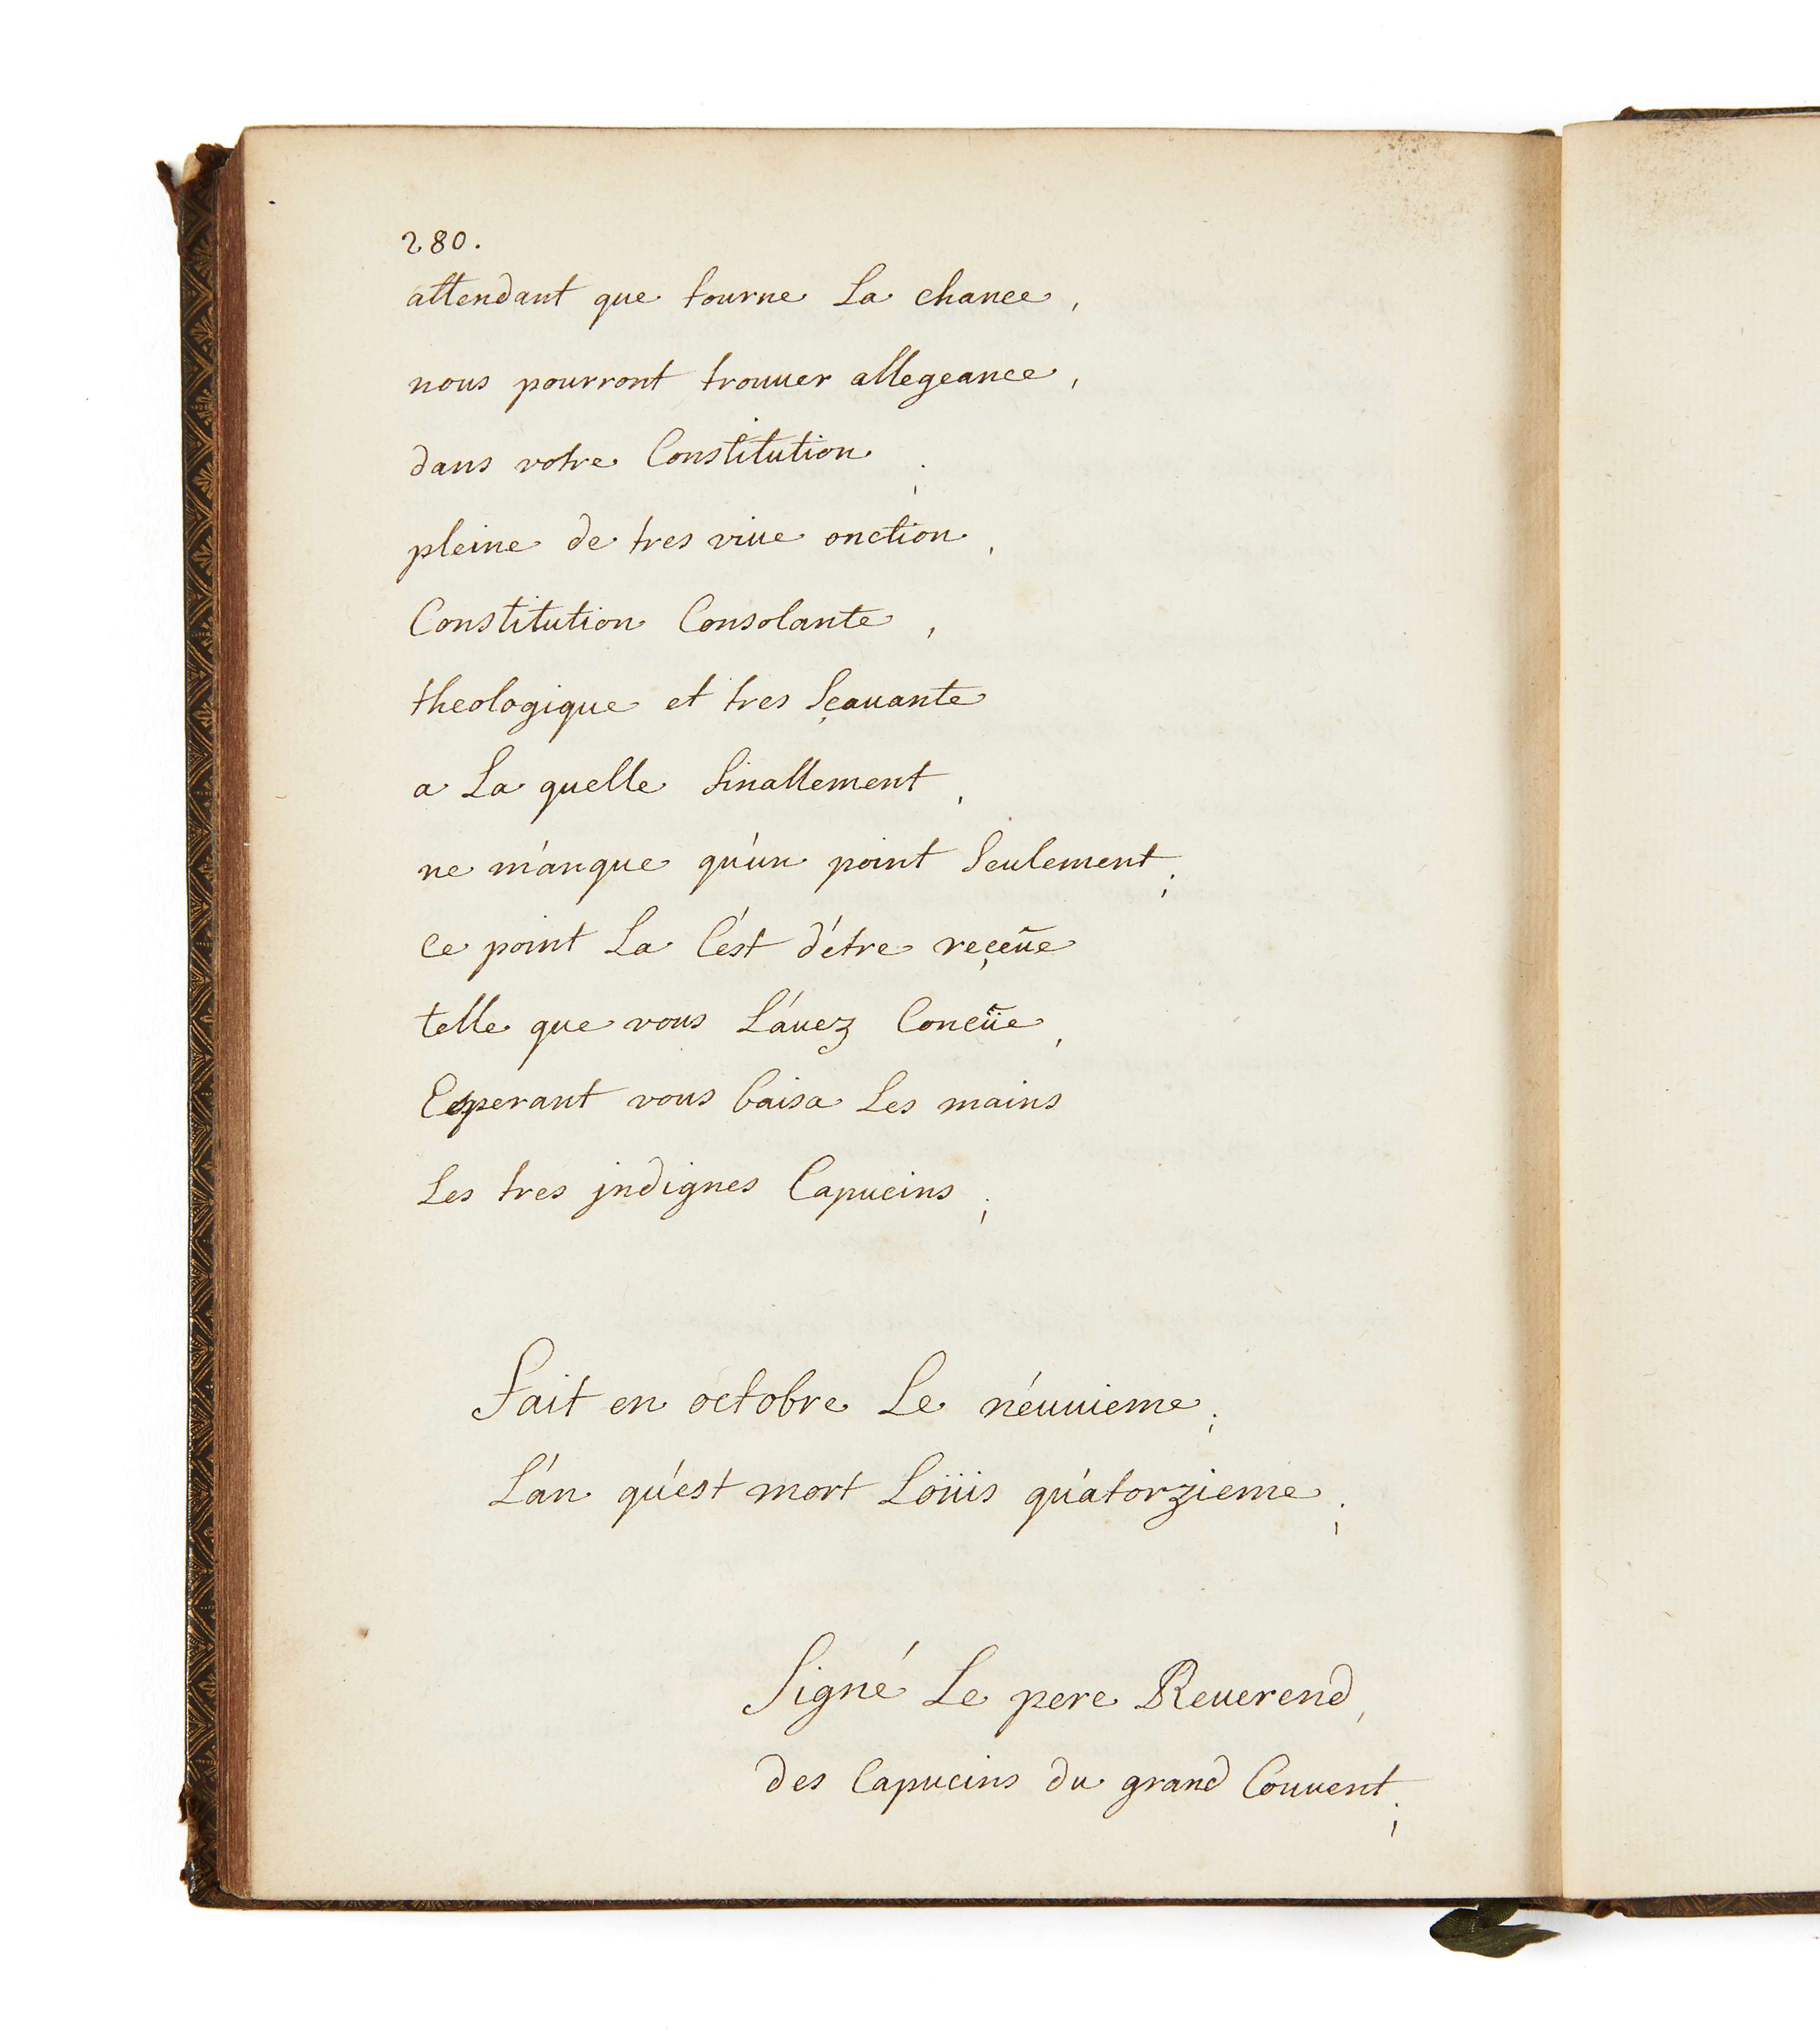 280.
attendant que tourne La chance,
nous pourront trouuer allegeance,
dans votre Constitution;
pleine de tres viue onction,
Constitution Consolante,
theologique et tres Sçauante
a La quelle finallement,
ne m'anque qu'un point Seulement;
Ce point La C'est d'étre reçeüe
telle que vous L'áuez Concüe,
Esperant vous baisa Les mains
Les tres jndignes Capucins;
Fait en octobre Le néuuieme;
L'án qu'est mort Loüis quátorzieme;
Signé Le pere Reuerend,
des Capucins du grand Couuent;